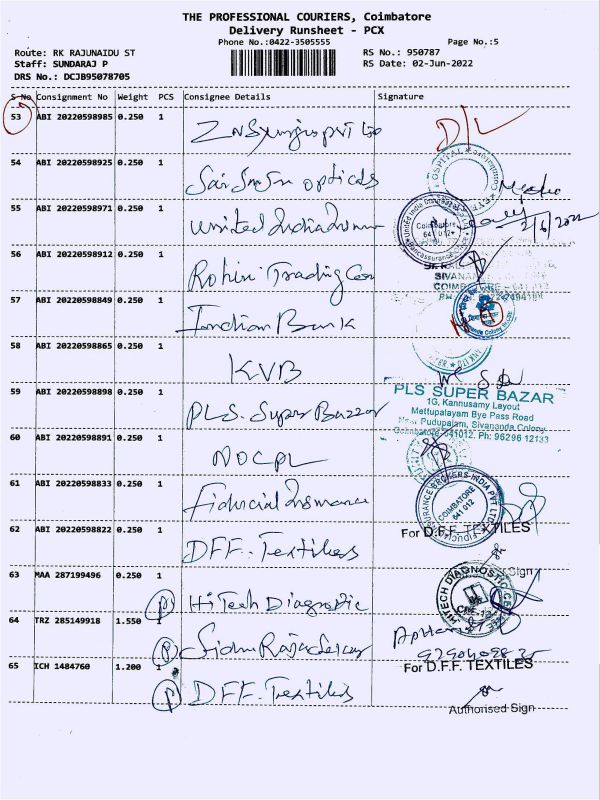 THE PROFESSIONAL COURIERS, Coimbatore
Delivery Runsheet - PCX
Phone No.:0422-3505555
Page No.:5
Route: RK RAJUNAIDU ST
RS No.: 950787
Staff: SUNDARAJ P
RS Date: 02-Jun-2022
DRS No.: DCJB95078705
S No Consignment No Weight PCS Consignee Details Signature
53 ABI 20220598985 0.250 1 D/L
54 ABI 20220598925 0.250 1 Opticals
HOSPITAL
55 ABI 20220598971 0.250 1 United India
Coimbatore 641 012 2/6/2022
56 ABI 20220598912 0.250 1 Rohini Trading
57 ABI 20220598849 0.250 1 Indian Bank
58 ABI 20220598865 0.250 1 KVB
59 ABI 20220598898 0.250 1 PLS. Super Bazzar
PLS SUPER BAZAR
1G, Kannusamy Layout
Mettupalayam Bye Pass Road
Near Pudupalam, Sivananda Colony
Coimbatore - 641012. Ph: 96296 12133
60 ABI 20220598891 0.250 1 NOCPL
61 ABI 20220598833 0.250 1 Fiducial Insurance
INSURANCE BROKERS-INDIA PVT LTD
COIMBATORE 641 012
62 ABI 20220598822 0.250 1 DFF. Textiles
For D.F.F. TEXTILES
Sign
63 MAA 287199496 0.250 1 P HiTech Diagnostic
HITECH DIAGNOSTIC
64 TRZ 285149918 1.550 1 P
65 ICH 1484760 1.200 1 P DFF. Textiles
For D.F.F. TEXTILES
Authorised Sign